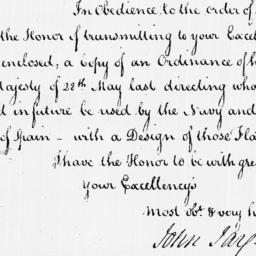 In Obedience to the order of
the Honor of transmitting to your Excel
enclosed, a Copy of an Ordinance of h
Majesty of 28th May last directing who
d in future be used by the Navy and
of Spain – with a Design of those Fla
I have the Honor to be with gre
Your Excellency's
most obt & very h
John Jay